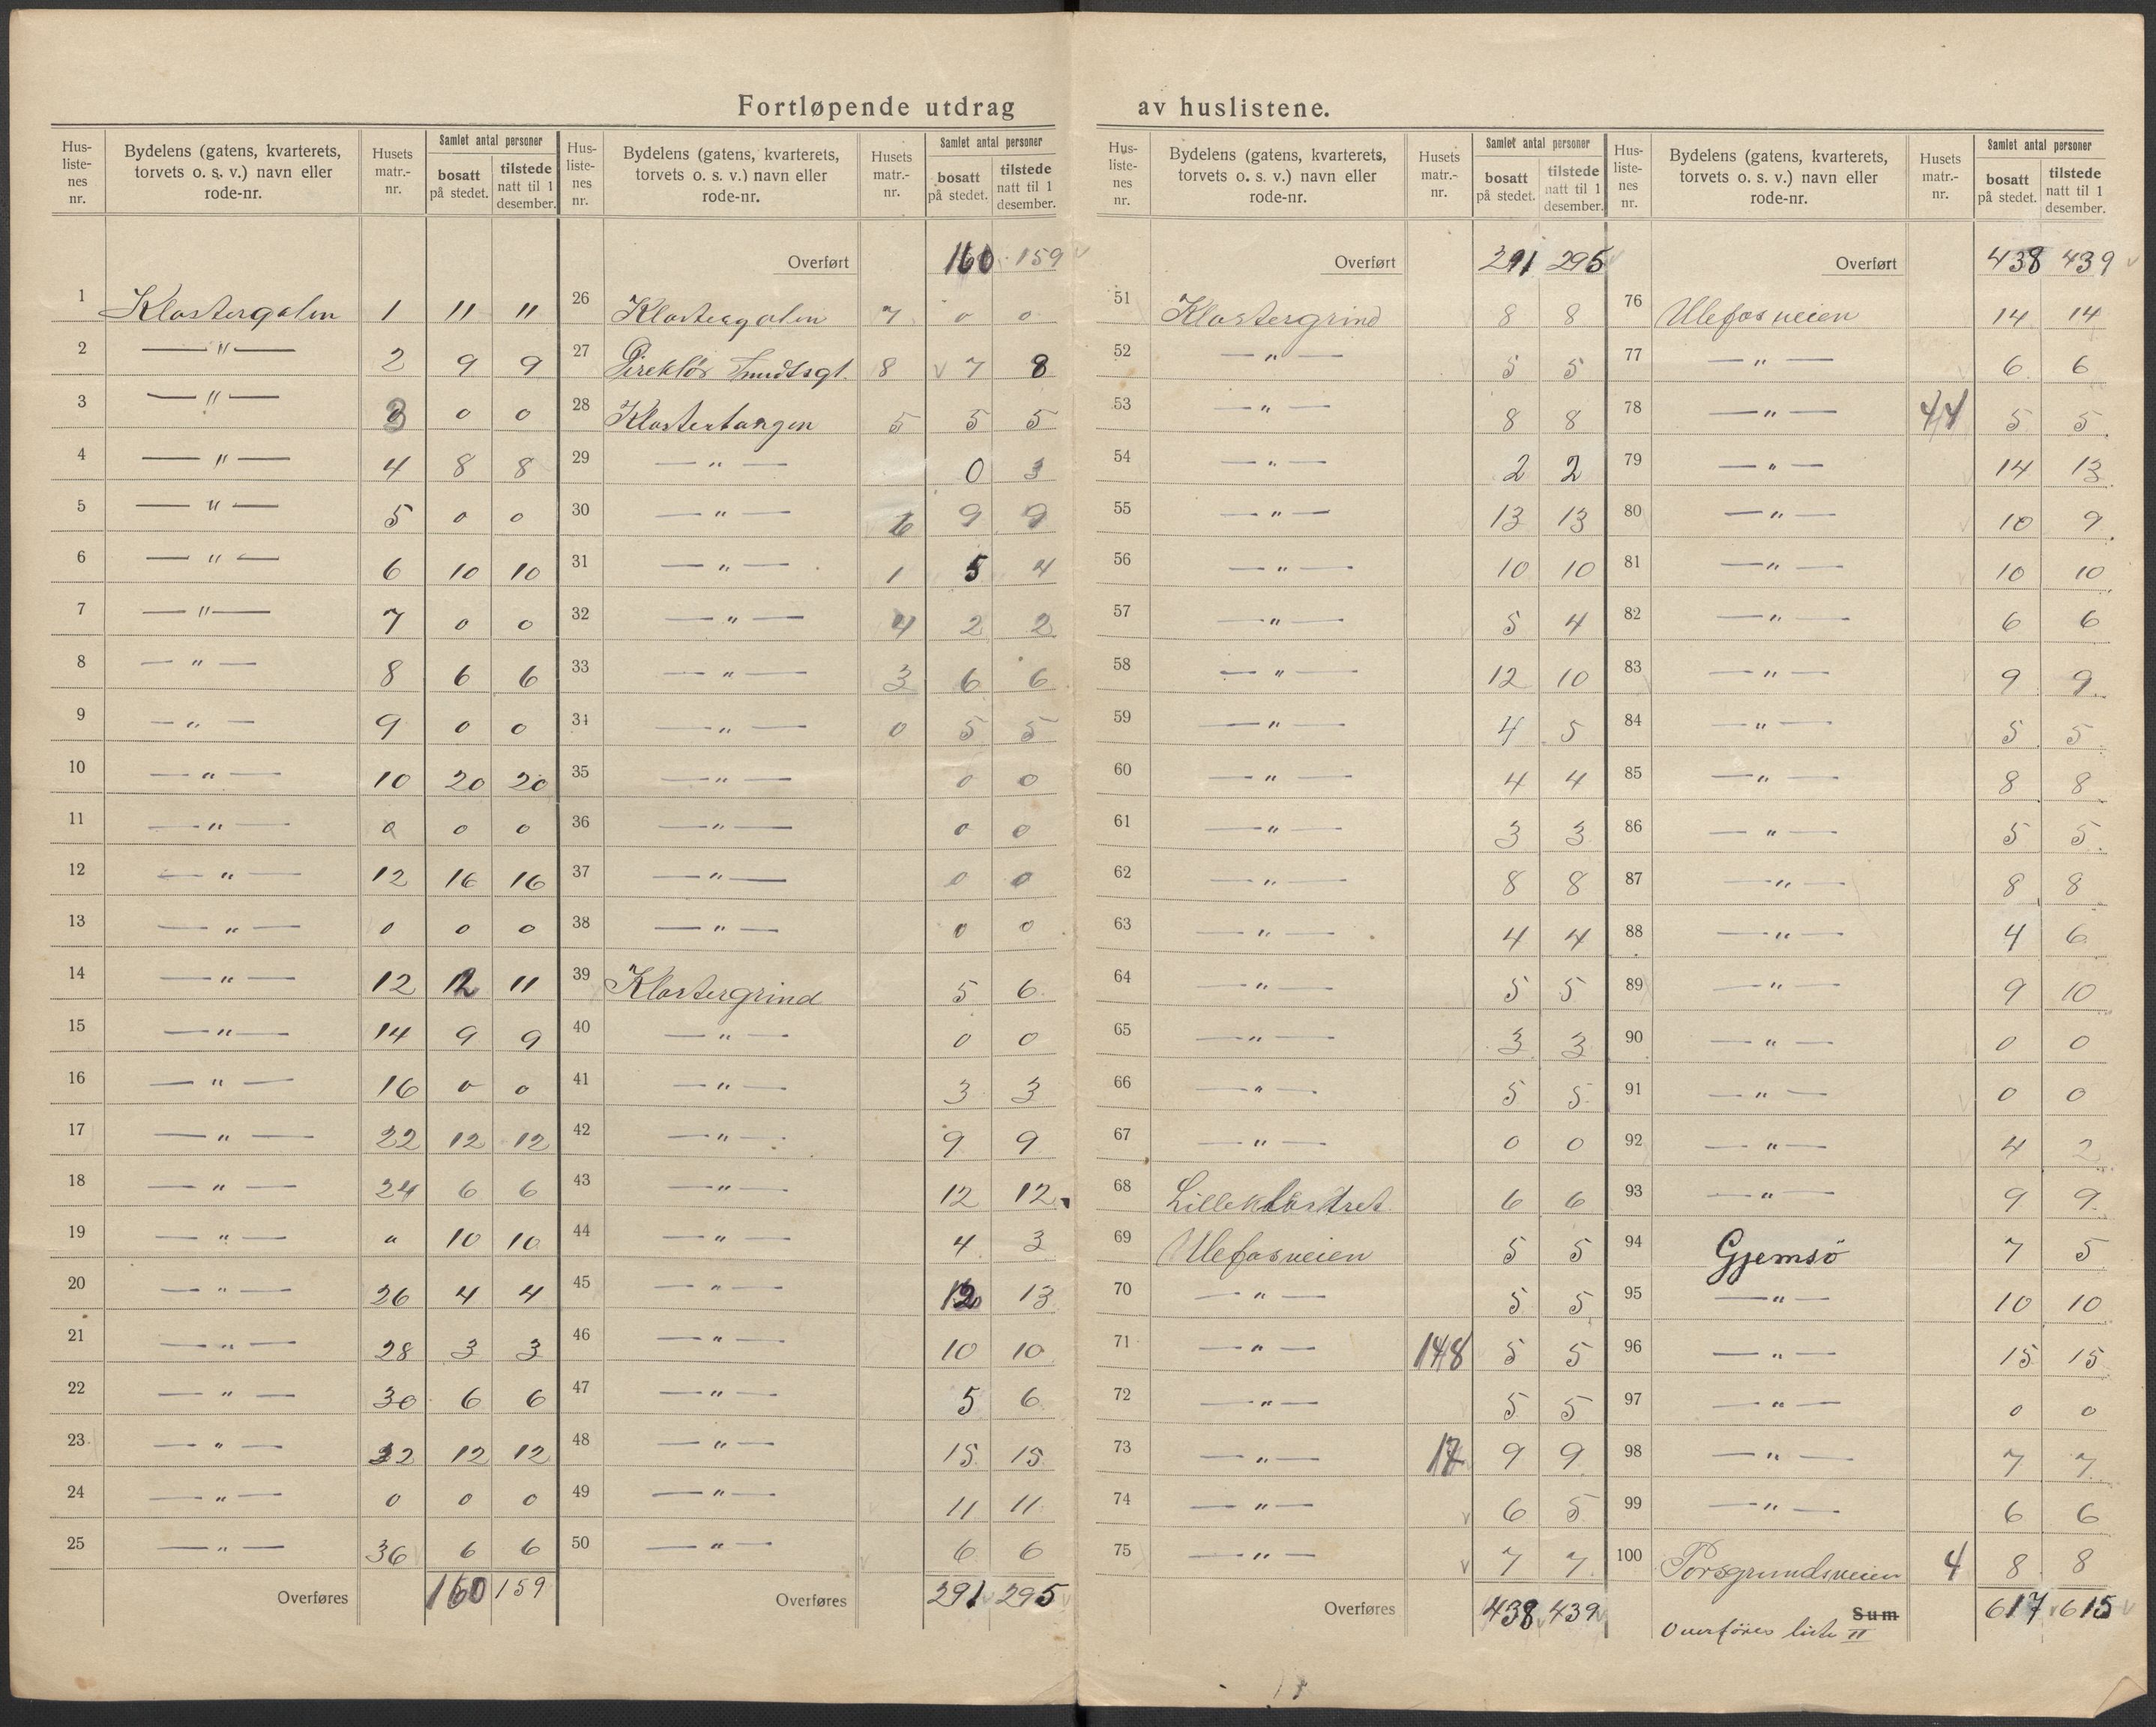 Fortløpende utdrag av huslistene.
Hus-listenes nr. | Bydelens (gatens, kvarterets, torvets o. s. v.) navn eller rode-nr. | Husets matr.-nr. | Samlet antal personer bosatt på stedet. | tilstede natt til 1 desember.
1 Klostergaten 1 11 11
2 — " — 2 9 9
3 — " — 3 0 0
4 — " — 4 8 8
5 — " — 5 0 0
6 — " — 6 10 10
7 — " — 7 0 0
8 — " — 8 6 6
9 — " — 9 0 0
10 — " — 10 20 20
11 — " — 0 0 0
12 — " — 12 16 16
13 — " — 0 0 0
14 — " — 12 12 11
15 — " — 14 9 9
16 — " — 16 0 0
17 — " — 22 12 12
18 — " — 24 6 6
19 — " — " 10 10
20 — " — 26 4 4
21 — " — 28 3 3
22 — " — 30 6 6
23 — " — 32 12 12
24 — " — 0 0 0
25 — " — 36 6 6
Overføres 160 159
Hus-listenes nr. | Bydelens (gatens, kvarterets, torvets o. s. v.) navn eller rode-nr. | Husets matr.-nr. | Samlet antal personer bosatt på stedet. | tilstede natt til 1 desember.
Overført 160 159
26 Klostergaten 7 0 0
27 Direktør Smidtsgt. 8 7 8
28 Klostertangen 5 5 5
29 — " — 0 3
30 — " — 6 9 9
31 — " — 1 5 4
32 — " — 4 2 2
33 — " — 3 6 6
34 — " — 0 5 5
35 — " — 0 0
36 — " — 0 0
37 — " — 0 0
38 — " — 0 0
39 Klostergrind 5 6
40 — " — 0 0
41 — " — 3 3
42 — " — 9 9
43 — " — 12 12
44 — " — 4 3
45 — " — 12 13
46 — " — 10 10
47 — " — 5 6
48 — " — 15 15
49 — " — 11 11
50 — " — 6 6
Overføres 291 295
Hus-listenes nr. | Bydelens (gatens, kvarterets, torvets o. s. v.) navn eller rode-nr. | Husets matr.-nr. | Samlet antal personer bosatt på stedet. | tilstede natt til 1 desember.
Overført 291 295
51 Klostergrind 8 8
52 — " — 5 5
53 — " — 8 8
54 — " — 2 2
55 — " — 13 13
56 — " — 10 10
57 — " — 5 4
58 — " — 12 10
59 — " — 4 5
60 — " — 4 4
61 — " — 3 3
62 — " — 8 8
63 — " — 4 4
64 — " — 5 5
65 — " — 3 3
66 — " — 5 5
67 — " — 0 0
68 Lilleklostret 6 6
69 Ulefosveien 5 5
70 — " — 5 5
71 — " — 148 5 5
72 — " — 5 5
73 — " — 17 9 9
74 — " — 6 5
75 — " — 7 7
Overføres 438 439
Hus-listenes nr. | Bydelens (gatens, kvarterets, torvets o. s. v.) navn eller rode-nr. | Husets matr.-nr. | Samlet antal personer bosatt på stedet. | tilstede natt til 1 desember.
Overført 438 439
76 Ulefosveien 14 14
77 — " — 6 6
78 — " — 44 5 5
79 — " — 14 13
80 — " — 10 9
81 — " — 10 10
82 — " — 6 6
83 — " — 9 9
84 — " — 5 5
85 — " — 8 8
86 — " — 5 5
87 — " — 8 8
88 — " — 4 6
89 — " — 9 10
90 — " — 0 0
91 — " — 0 0
92 — " — 4 2
93 — " — 9 9
94 Gjemsö 7 5
95 — " — 10 10
96 — " — 15 15
97 — " — 0 0
98 — " — 7 7
99 — " — 6 6
100 Porsgrundsveien 4 8 8
Sum 617 615
Overföres liste II